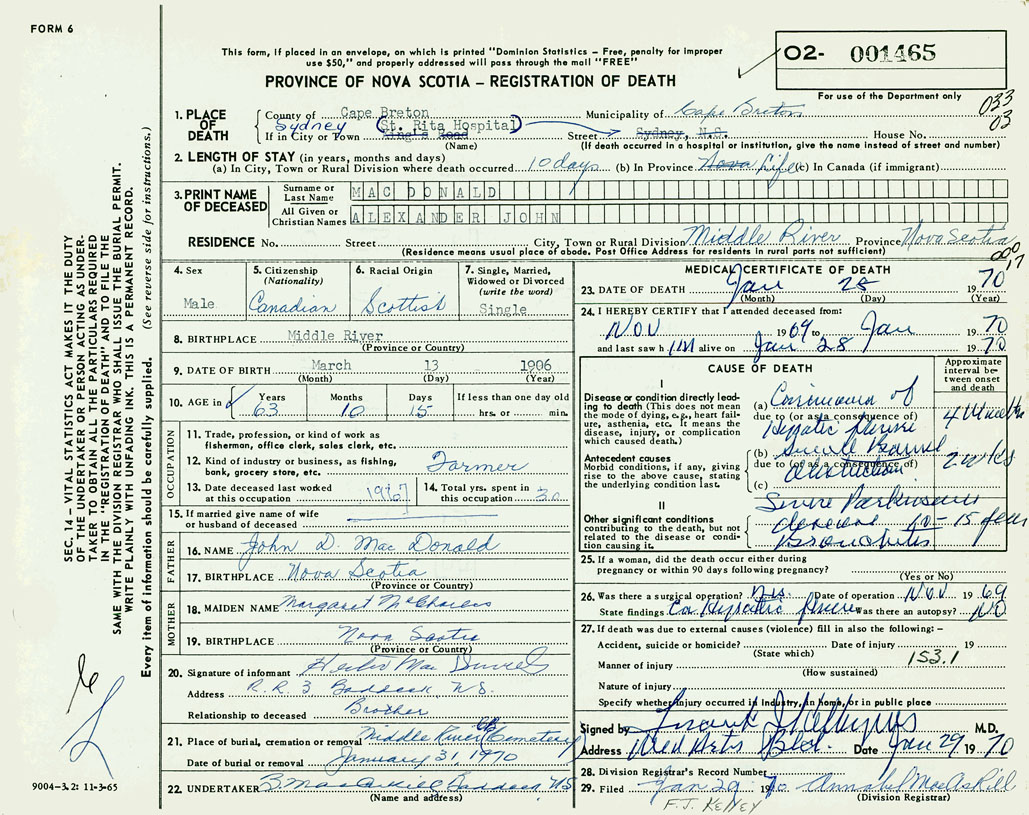 FORM 6
This form, if placed in an envelope, on which is printed "Dominion Statistics – Free, penalty for improper
use $50," and properly addressed will pass through the mail "FREE"
O2- 001465
PROVINCE OF NOVA SCOTIA – REGISTRATION OF DEATH
For use of the Department only
033
03
1. PLACE OF DEATH
County of Cape Breton Municipality of Cape Breton
Sydney (St. Rita Hospital)
If in City or Town King's Road Street Sydney, N.S. House No.
(Name) (If death occurred in a hospital or institution, give the name instead of street and number)
2. LENGTH OF STAY (in years, months and days)
(a) In City, Town or Rural Division where death occurred 10 days (b) In Province Nova Life (c) In Canada (if immigrant)
3. PRINT NAME OF DECEASED
Surname or Last Name MAC DONALD
All Given or Christian Names ALEXANDER JOHN
RESIDENCE No. Street City, Town or Rural Division Middle River Province Nova Scotia
(Residence means usual place of abode. Post Office Address for residents in rural parts not sufficient)
000
17
4. Sex
Male
5. Citizenship
(Nationality)
Canadian
6. Racial Origin
Scottish
7. Single, Married,
Widowed or Divorced
(write the word)
Single
8. BIRTHPLACE Middle River
(Province or Country)
9. DATE OF BIRTH March 13 1906
(Month) (Day) (Year)
10. AGE in Years Months Days If less than one day old
63 10 15 hrs. or min.
OCCUPATION
11. Trade, profession, or kind of work as
fisherman, office clerk, sales clerk, etc.
12. Kind of industry or business, as fishing,
bank, grocery store, etc. Farmer
13. Date deceased last worked
at this occupation 1967
14. Total yrs. spent in
this occupation 30
15. If married give name of wife
or husband of deceased
FATHER
16. NAME John D. Mac Donald
17. BIRTHPLACE Nova Scotia
(Province or Country)
MOTHER
18. MAIDEN NAME Margaret
19. BIRTHPLACE Nova Scotia
(Province or Country)
20. Signature of informant Mac
Address R.R. 3 Baddeck, N.S.
Relationship to deceased Brother
21. Place of burial, cremation or removal Middle River Cemetery
Date of burial or removal January 31, 1970
22. UNDERTAKER Baddeck NS
(Name and address)
MEDICAL CERTIFICATE OF DEATH
23. DATE OF DEATH Jan 28 1970
(Month) (Day) (Year)
24. I HEREBY CERTIFY that I attended deceased from:
Nov 1969 to Jan 1970
and last saw him alive on Jan 28 1970
CAUSE OF DEATH
Approximate interval between onset and death
I
Disease or condition directly leading to death (This does not mean the mode of dying, e.g., heart failure, asthenia, etc. It means the disease, injury, or complication which caused death.)
(a) Carcinoma of
due to (or as a consequence of)
Hepatic flexure
Antecedent causes
Morbid conditions, if any, giving rise to the above cause, stating the underlying condition last.
(b) Small Bowel
due to (or as a consequence of)
obstruction 2 wks
(c)
II
Other significant conditions
contributing to the death, but not related to the disease or condition causing it.
Severe Parkinsons
disease 10-15 years
Bronchitis
25. If a woman, did the death occur either during
pregnancy or within 90 days following pregnancy?
(Yes or No)
26. Was there a surgical operation? Yes. Date of operation Nov 1969
State findings Ca Hepatic flexure Was there an autopsy? No
27. If death was due to external causes (violence) fill in also the following: –
Accident, suicide or homicide? Date of injury 19
(State which)
153.1
Manner of injury
(How sustained)
Nature of injury
Specify whether injury occurred in Industry, in home, or in public place
Signed by Frank M.D.
Address Med Arts Bld. Date Jan 29, 1970
28. Division Registrar's Record Number
29. Filed Jan 29 1970 Annabel MacAskill
(Division Registrar)
F.J. KELLEY
SEC. 14 – VITAL STATISTICS ACT MAKES IT THE DUTY
OF THE UNDERTAKER OR PERSON ACTING AS UNDERTAKER
TO OBTAIN ALL THE PARTICULARS REQUIRED
IN THE "REGISTRATION OF DEATH" AND TO FILE THE
SAME WITH THE DIVISION REGISTRAR WHO SHALL ISSUE THE BURIAL PERMIT.
WRITE PLAINLY WITH UNFADING INK. THIS IS A PERMANENT RECORD.
Every item of information should be carefully supplied. (See reverse side for instructions.)
9004-3.2: 11-3-65